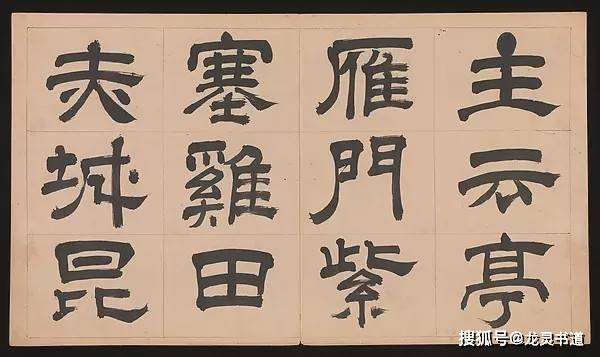 主云亭
雁門紫
塞雞田
赤城昆
搜狐号@龙灵书道